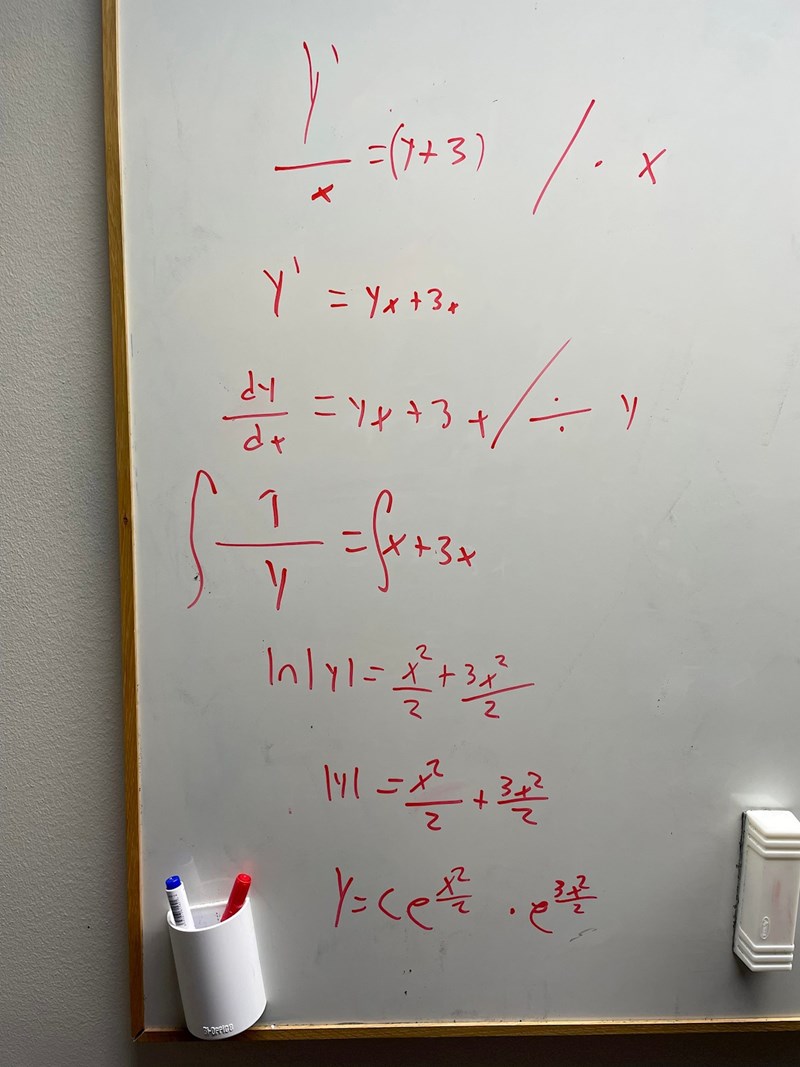 y'/x = (y+3) / · x
y' = yx+3x
dy/dx = yx+3x / ÷ y
∫ 1/y = ∫x+3x
ln|y| = x²/2 + 3x²/2
|y| = x²/2 + 3x²/2
y = c e^(x²/2) · e^(3x²/2)